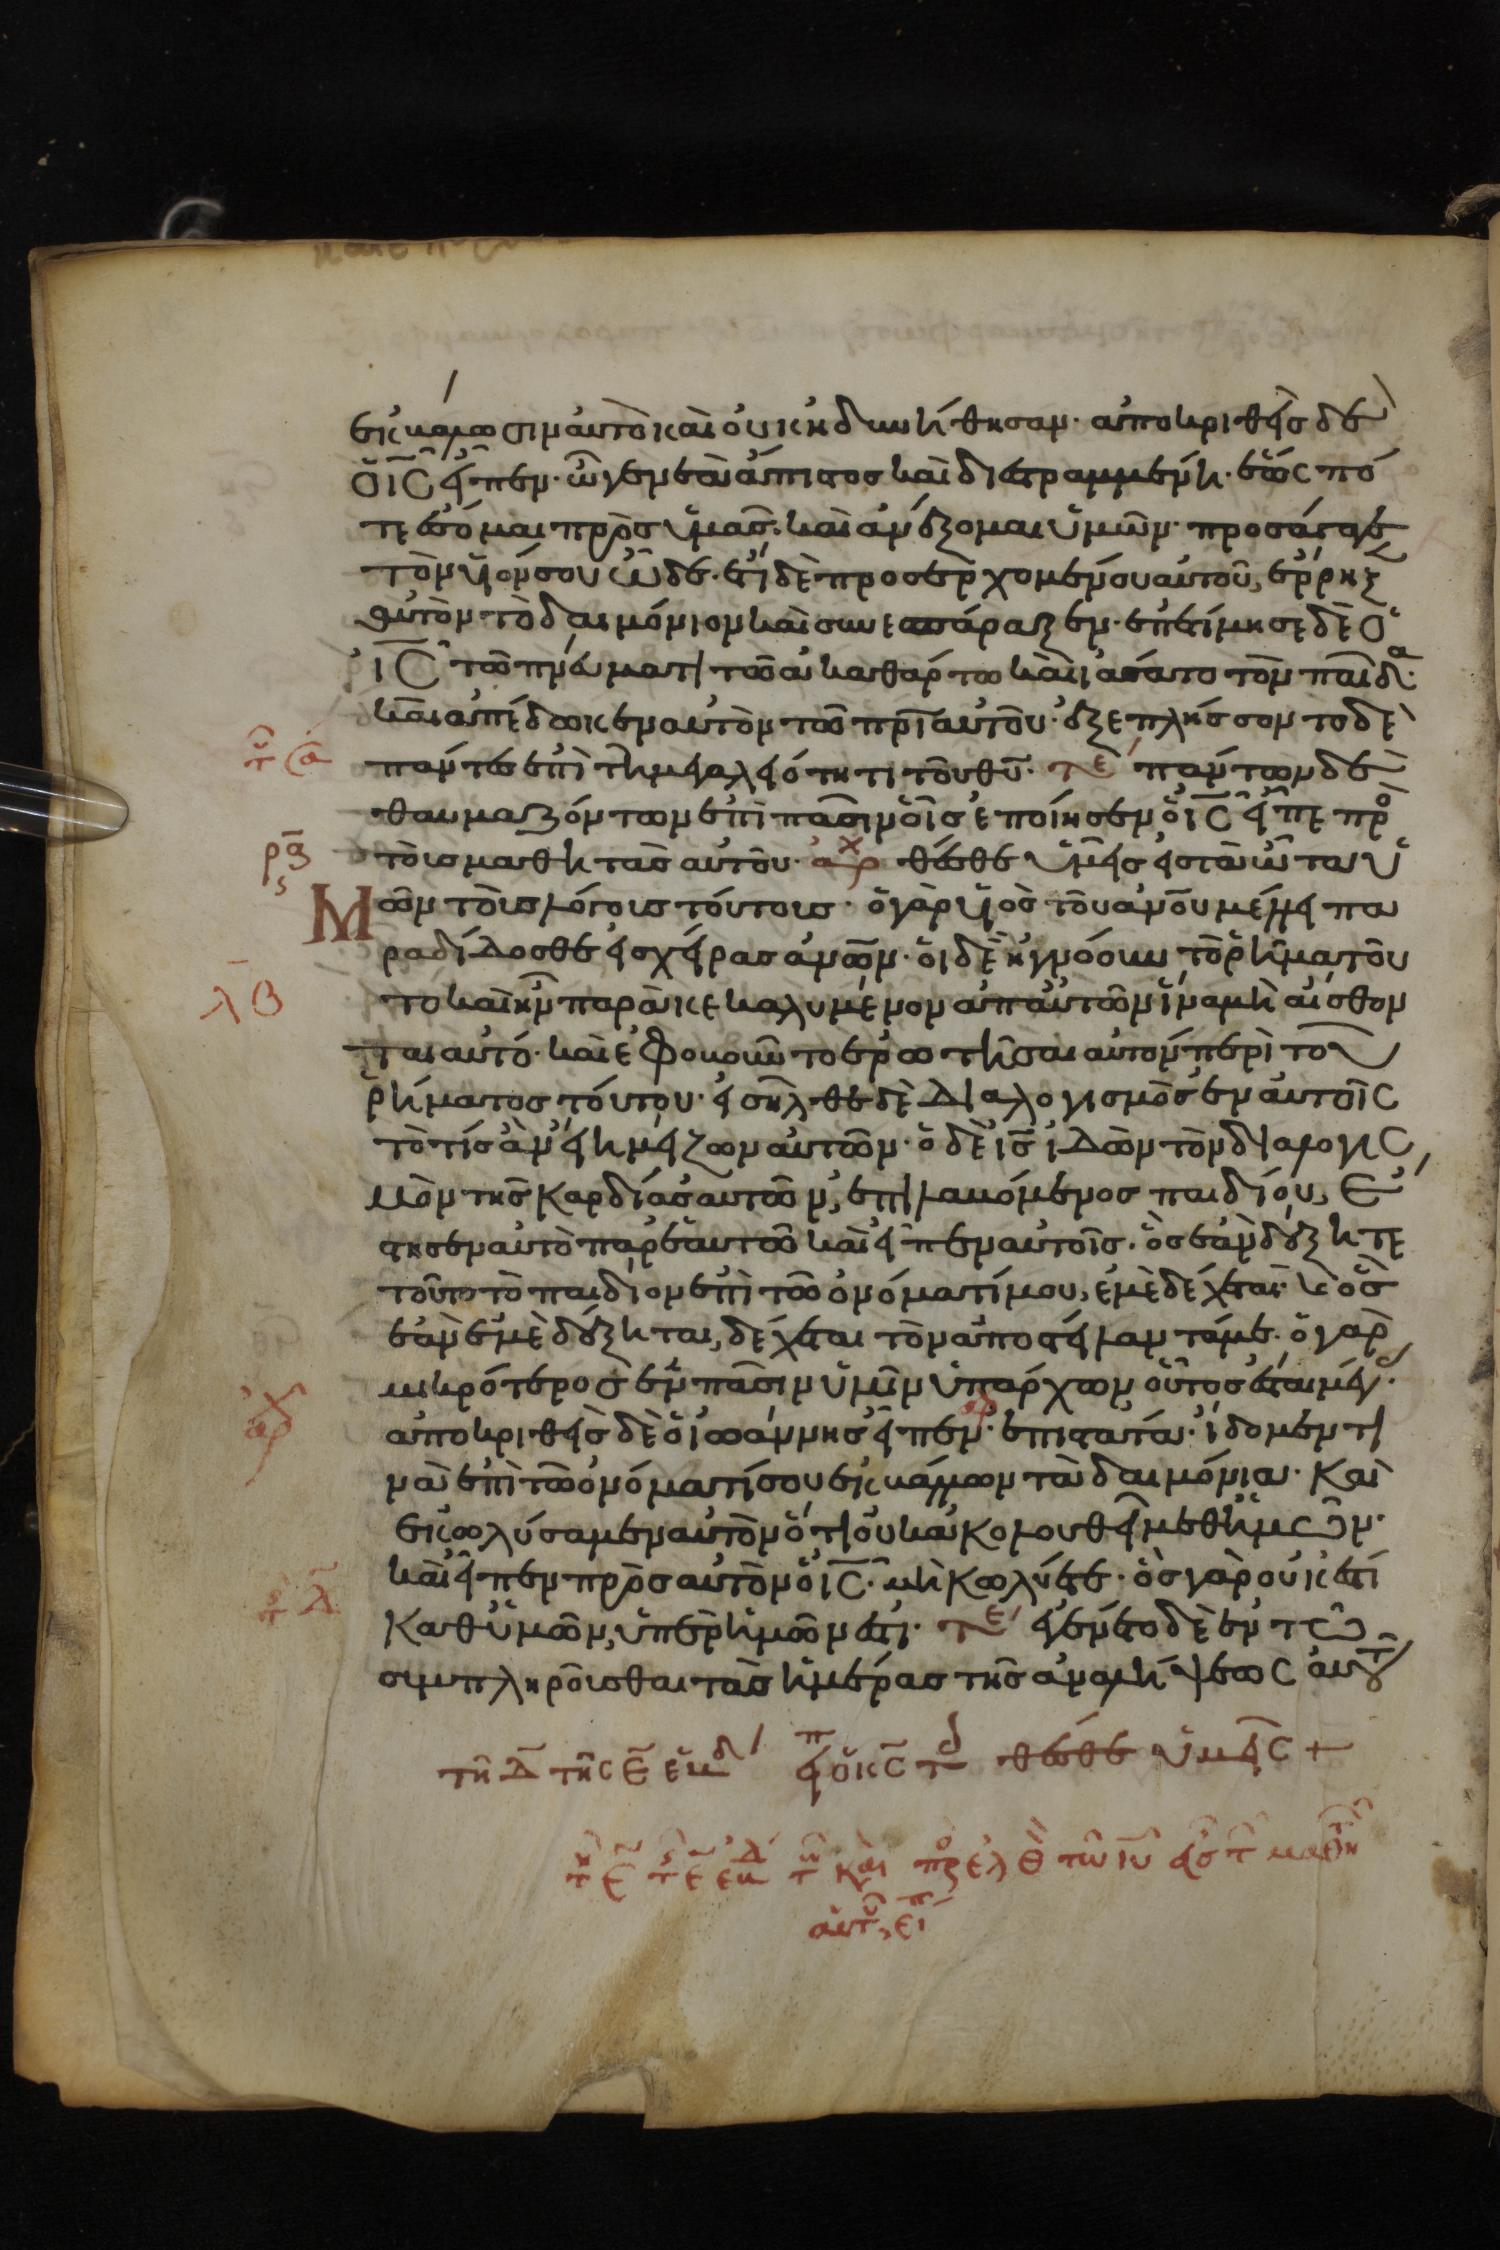 ἐκβάλωσιν αὐτὸ καὶ οὐκ ἠδυνήθησαν· ἀποκριθεὶς δὲ
ὁ ις εἶπεν· ὦ γενεὰ ἄπιστος καὶ διεστραμμένη· ἕως πό
τε ἔσομαι πρὸς ὑμᾶς· καὶ ἀνέξομαι ὑμῶν· προσάγαγε
τὸν υἱόν σου ὧδε· ἔτι δὲ προσερχομένου αὐτοῦ, ἔρρηξ
αὐτὸν τὸ δαιμόνιον καὶ συνεσπάραξεν· ἐπετίμησε δὲ ὁ
ις τῶ πνεύματι τῶ ἀκαθάρτω καὶ ἰάσατο τὸν παῖδα·
καὶ ἀπέδωκεν αὐτὸν τῶ πρι αὐτοῦ· ἐξεπλήσσοντο δὲ
πάντες ἐπὶ τῆ μεγαλειότητι τοῦ θυ· τε πάντων δὲ
θαυμαζόντων ἐπὶ πᾶσιν οἷς ἐποίησεν ὁ ις εἶπε προ
τοὺς μαθητὰς αὐτοῦ· αρχ θέσθε ὑμεῖς εἰς τὰ ὦτα ὑ
μῶν τοὺς λόγους τούτους· ὁ γὰρ υἱὸς τοῦ ανου μέλλει πα
ραδίδοσθαι εἰς χεῖρας ανων· οἱ δὲ ἠγνόουν τὸ ῥῆμα τοῦ
το καὶ ἦν παρακεκαλυμένον ἀπ αὐτῶν ἵνα μὴ αἴσθον
ται αὐτό· καὶ ἐφοβοῦντο ἐρωτῆσαι αὐτόν περὶ του
ῥήματος τούτου· εἰσῆλθε δὲ διαλογισμὸς ἐν αὐτοῖς
τὸ τίς ἂν εἴη μείζων αὐτῶν· ὁ δὲ ις ἰδὼν τὸν διαλογις
μὸν τῆς καρδίας αὐτῶν, ἐπιλαβόμενος παιδίου, ἔ
στησεν αὐτὸ παρ ἑαυτῶ καὶ εἶπεν αὐτοῖς· ὃς ἐὰν δέξητε
τοῦτο τὸ παιδίον ἐπὶ τῶ ὀνόματί μου, ἐμὲ δέχεται· κ ὃς
ἐὰν ἐμὲ δέξηται, δέχεται τὸν ἀποστείλαντά με· ὁ γὰρ
μικρότερος ἐν πᾶσιν ὑμῖν ὑπάρχων οὗτος ἔσται μέγ·
ἀποκριθεὶς δὲ ὁ ἰωάννης εἶπεν· ἐπιστάτα· ἴδομέν τι
να ἐπὶ τῶ ὀνόματί σου ἐκβάλλων τὰ δαιμόνια· καὶ
ἐκωλύσαμεν αὐτὸν ὅτι οὐκ ἀκολουθεῖ μεθ ἡμῶν·
καὶ εἶπεν πρὸς αὐτὸν ὁ ις· μὴ κωλύετε· ὃς γὰρ οὐκ ἔστι
καθ ὑμῶν, ὑπὲρ ἡμῶν ἐστι· τε ἐγένετο δὲ ἐν τῶ
συμπληροῦσθαι τὰς ἡμέρας τῆς ἀναλήψεως αὐτ
ρα
λβ
αρχ
τῆ δ τῆς ε ἑβδ εἶπ ὁ κς τ θέσθε ὑμεῖς +